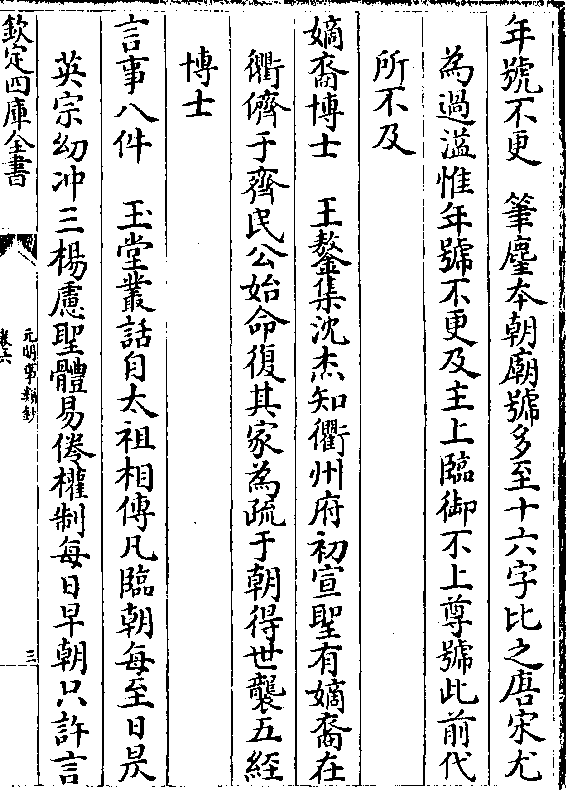 年號不更　筆麈本朝廟號多至十六字比之唐宋尤
為過溢惟年號不更及主上臨御不上尊號此前代
所不及
嫡裔博士　王鏊集沈杰知衢州府初宣聖有嫡裔在
衢儕于齊民公始命復其家為疏于朝得世襲五經
博士
言事八件　玉堂叢話自太祖相傳凡臨朝每至日昃
英宗幼冲三楊慮聖體易倦權制每日早朝只許言
欽定四庫全書
元明事類鈔
卷六
三